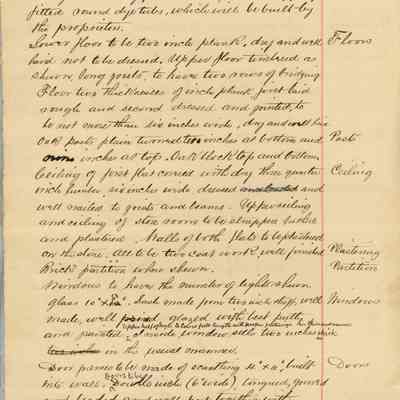 fitted round dye tubs, which will be built by
the proprietor.
Lower floor to be two inch plank, dry and well Floors
laid not to be dressed. Upper floor timbered as
shown, long joists, to have two rows of bridging
Floor two thicknesses of inch plank first laid
rough and second dressed and jointed, to
be not more than six inches wide, dry and well laid
Oak posts plain turned ten inches at bottom and Posts
nine inches at top. Oak block top and bottom.
Ceiling of first flat covered with dry three quarter Ceiling
inch lumber, six inches wide dressed and
well nailed to joists and beams. Upper ceiling
and ceiling of store room to be strapped lathed
and plastered. Walls of both flats to be plastered
on the stone. All to be two coat work well finished Plastering
Brick partition where shown. Partition
Windows to have the number of lights shown
glass 10" x Sash made from two inch stuff, well Windows
made, well glazed with best putty
and painted. Inside window sills two inches thick
in the usual manner.
Door frames to be made of scantling 4" x 4", built Doors
into wall. Double inch (6" wide), tongued, grooved
and beaded and well put together with